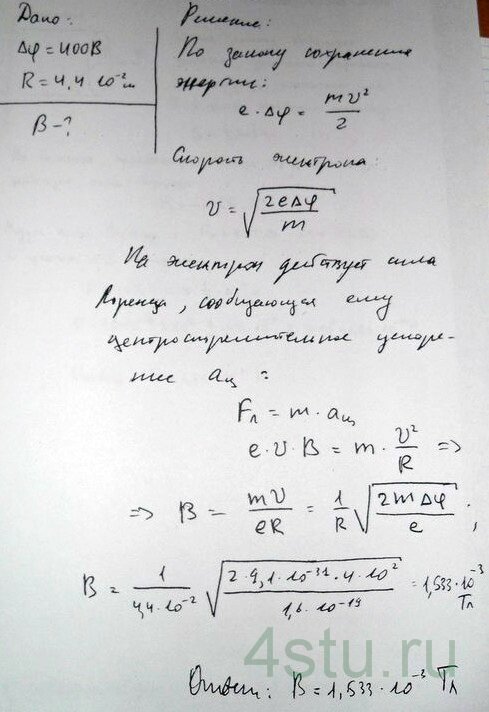 Дано:
Δφ = 400В
R = 4,4·10⁻² м
B - ?
Решение:
По закону сохранения
энергии:
e·Δφ = mv²/2
Скорость электрона:
v = √(2eΔφ/m)
На электрон действует сила
Лоренца, сообщающая ему
центростремительное ускоре-
ние aц:
Fл = m·aц
e·v·B = m·v²/R =>
=> B = mv/eR = 1/R √(2mΔφ/e);
B = 1/4,4·10⁻² √(2·9,1·10⁻³¹·4·10²/1,6·10⁻¹⁹) = 1,533·10⁻³
Тл
4stu.ru
Ответ: B = 1,533·10⁻³ Тл